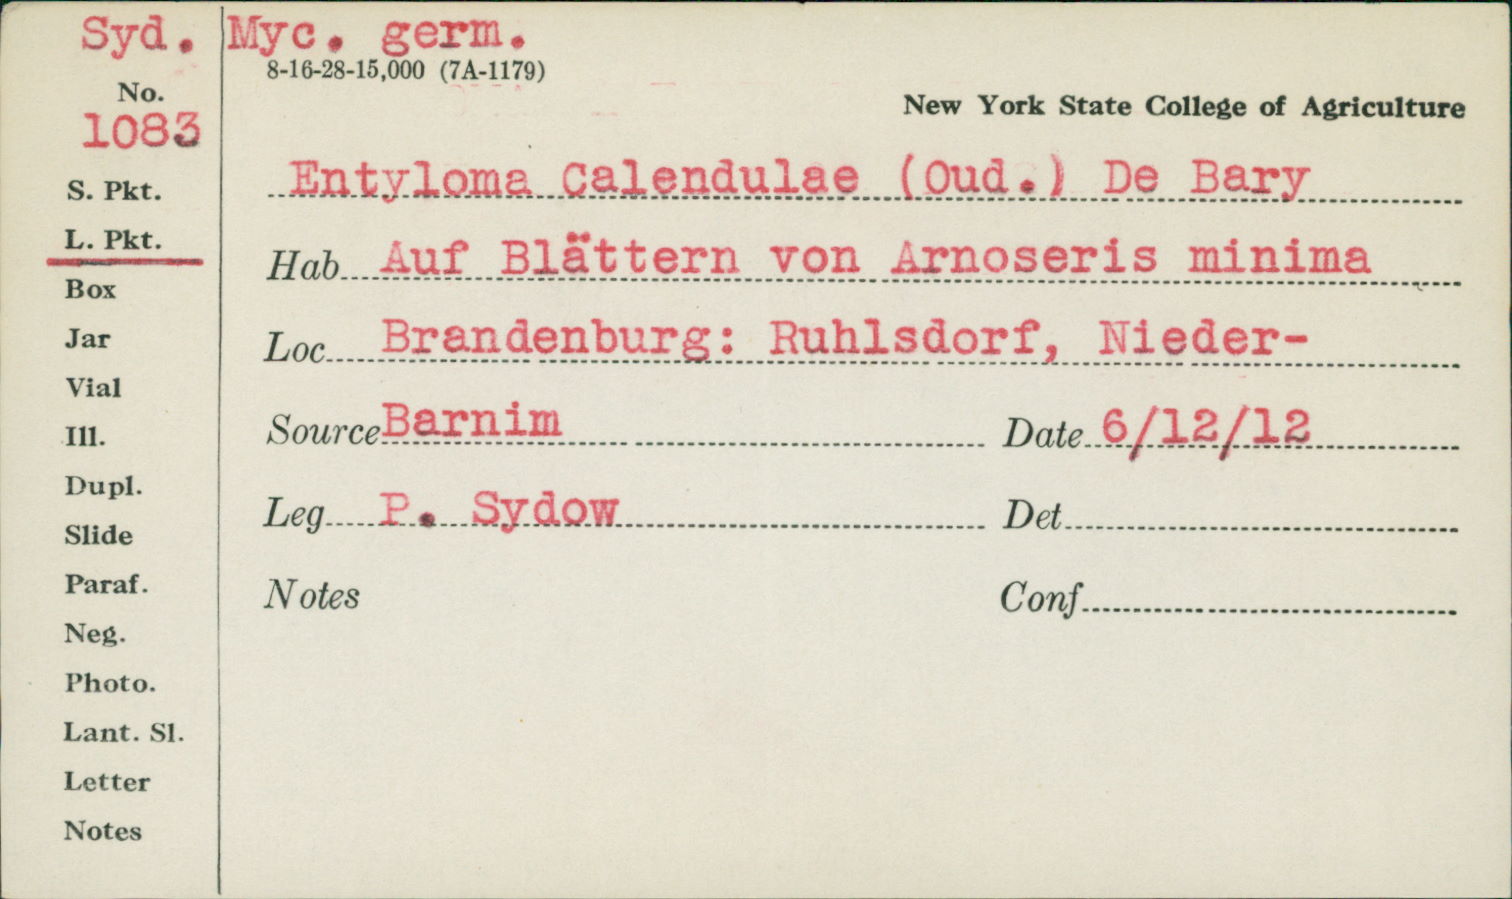 Syd. Myc. germ.
8-16-28-15,000 (7A-1179)
No.
1083
New York State College of Agriculture
S. Pkt.
Entyloma Calendulae (Oud.) De Bary
L. Pkt.
Hab Auf Blättern von Arnoseris minima
Box
Jar
Loc Brandenburg: Ruhlsdorf, Nieder-
Vial
Ill.
Source Barnim Date 6/12/12
Dupl.
Leg P. Sydow Det
Slide
Paraf.
Notes Conf
Neg.
Photo.
Lant. Sl.
Letter
Notes